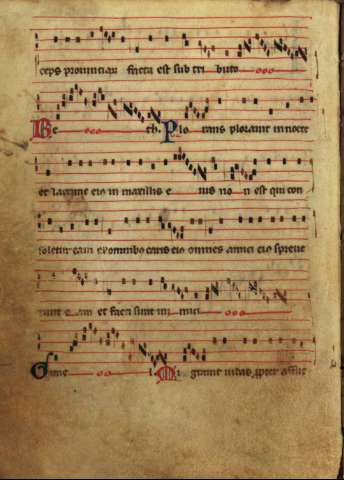 ceps prouinciarum facta est sub tri buto
Be th. Plo rans plorauit in nocte
et lacrime eius in maxillis e ius no n est qui con
soletur eam ex omnibus caris eius omnes amici eius spreue
runt e am et facti sunt ini mici
Gime l. Mi grauit iudas propter afflic